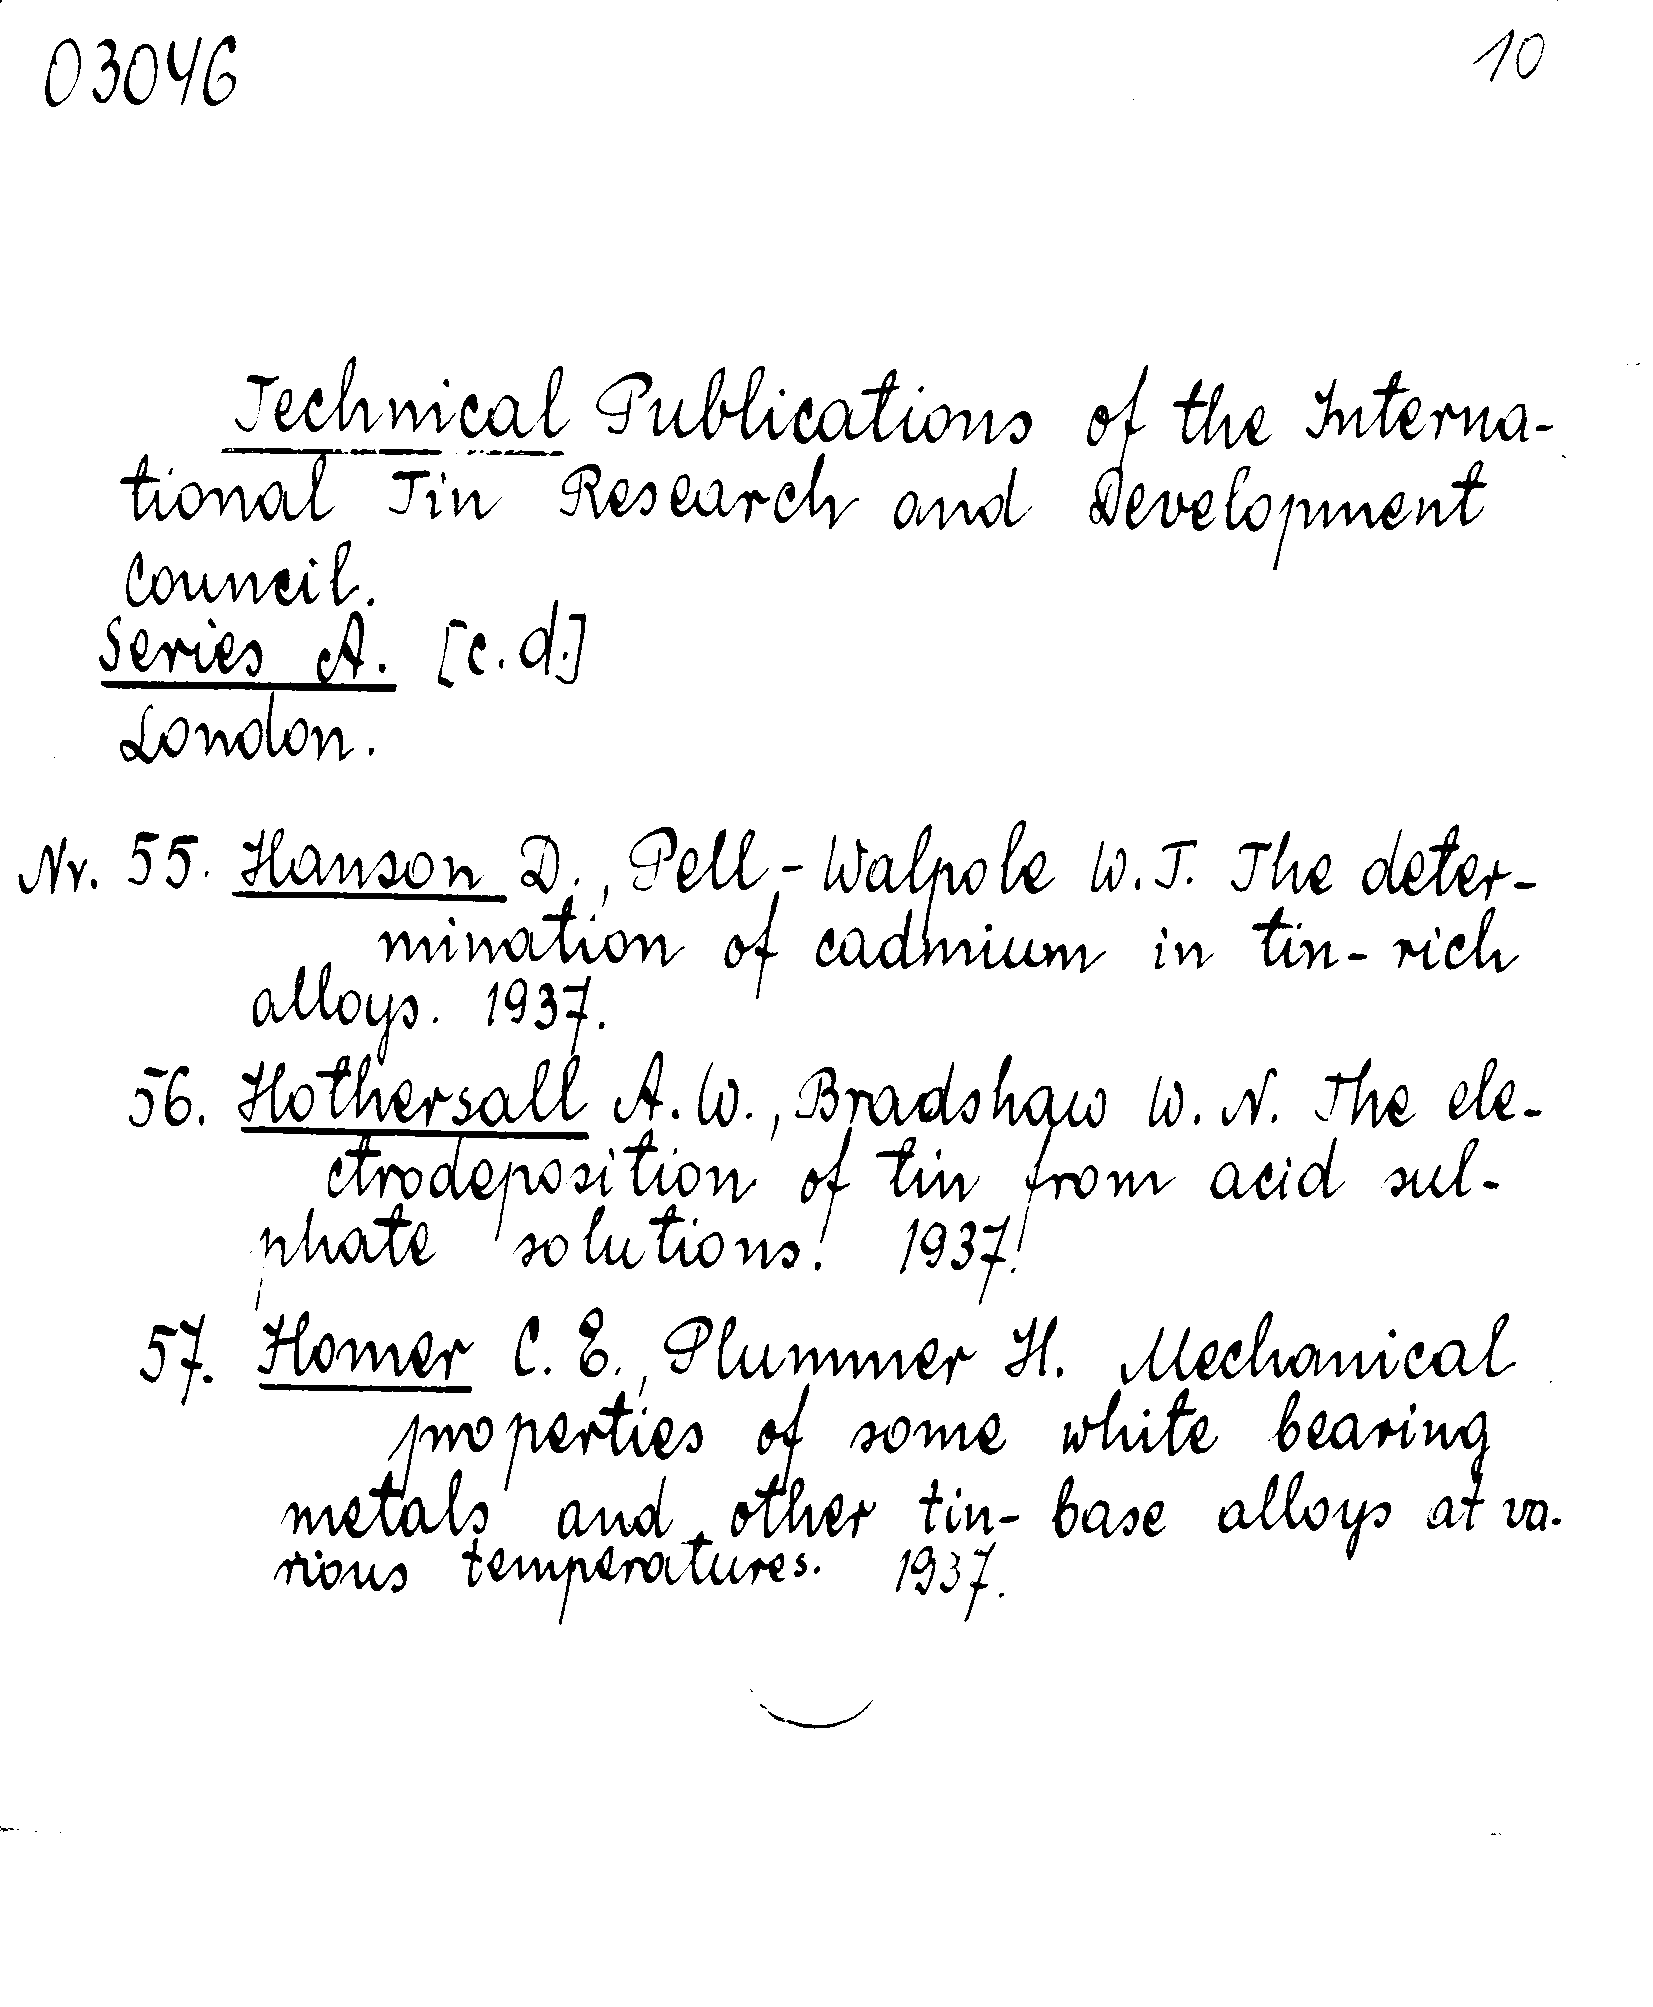 03046
10
Technical Publications of the Interna-
tional Tin Research and Development
Council.
Series A. [c.d.]
London.
Nr. 55. Hanson D., Pell-Walpole W.T. The deter-
mination of cadmium in tin-rich
alloys. 1937.
56. Hothersall A.W., Bradshaw W.N. The ele-
ctrodeposition of tin from acid sul-
phate solutions. 1937.
57. Homer C.E., Plummer H. Mechanical
properties of some white bearing
metals and other tin-base alloys at va-
rious temperatures. 1937.